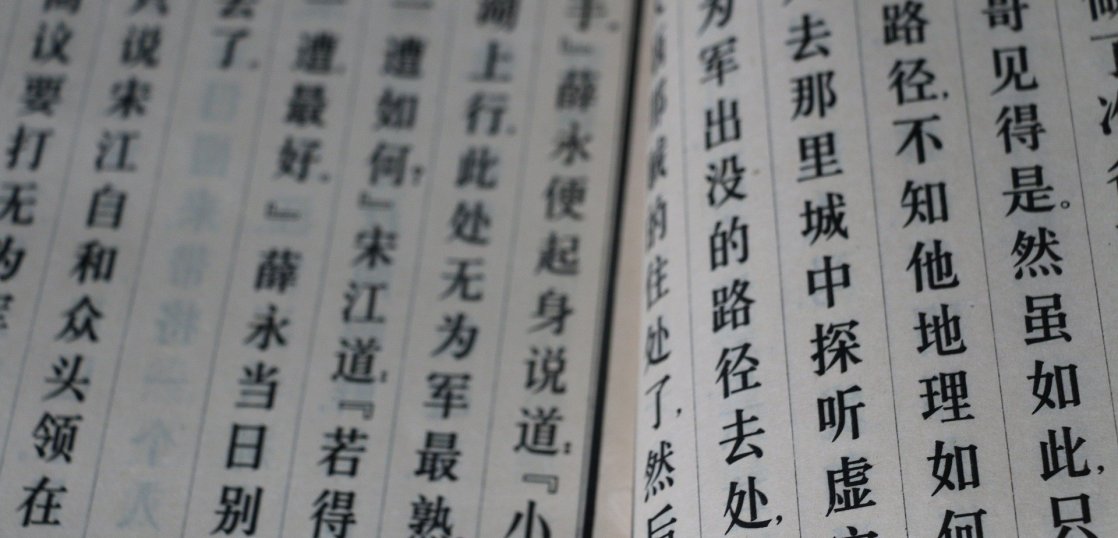 哥见得是。然虽如此，只
路径，不知他地理如何
去那里城中探听虚
为军出没的路径去处，
的住处了，然后
手。』薛永便起身说道：『小
湖上行。此处无为军最熟，
一遭如何？』宋江道：『若得
一遭，最好。』薛永当日别
去了。
只说宋江自和众头领在
商议要打无为军